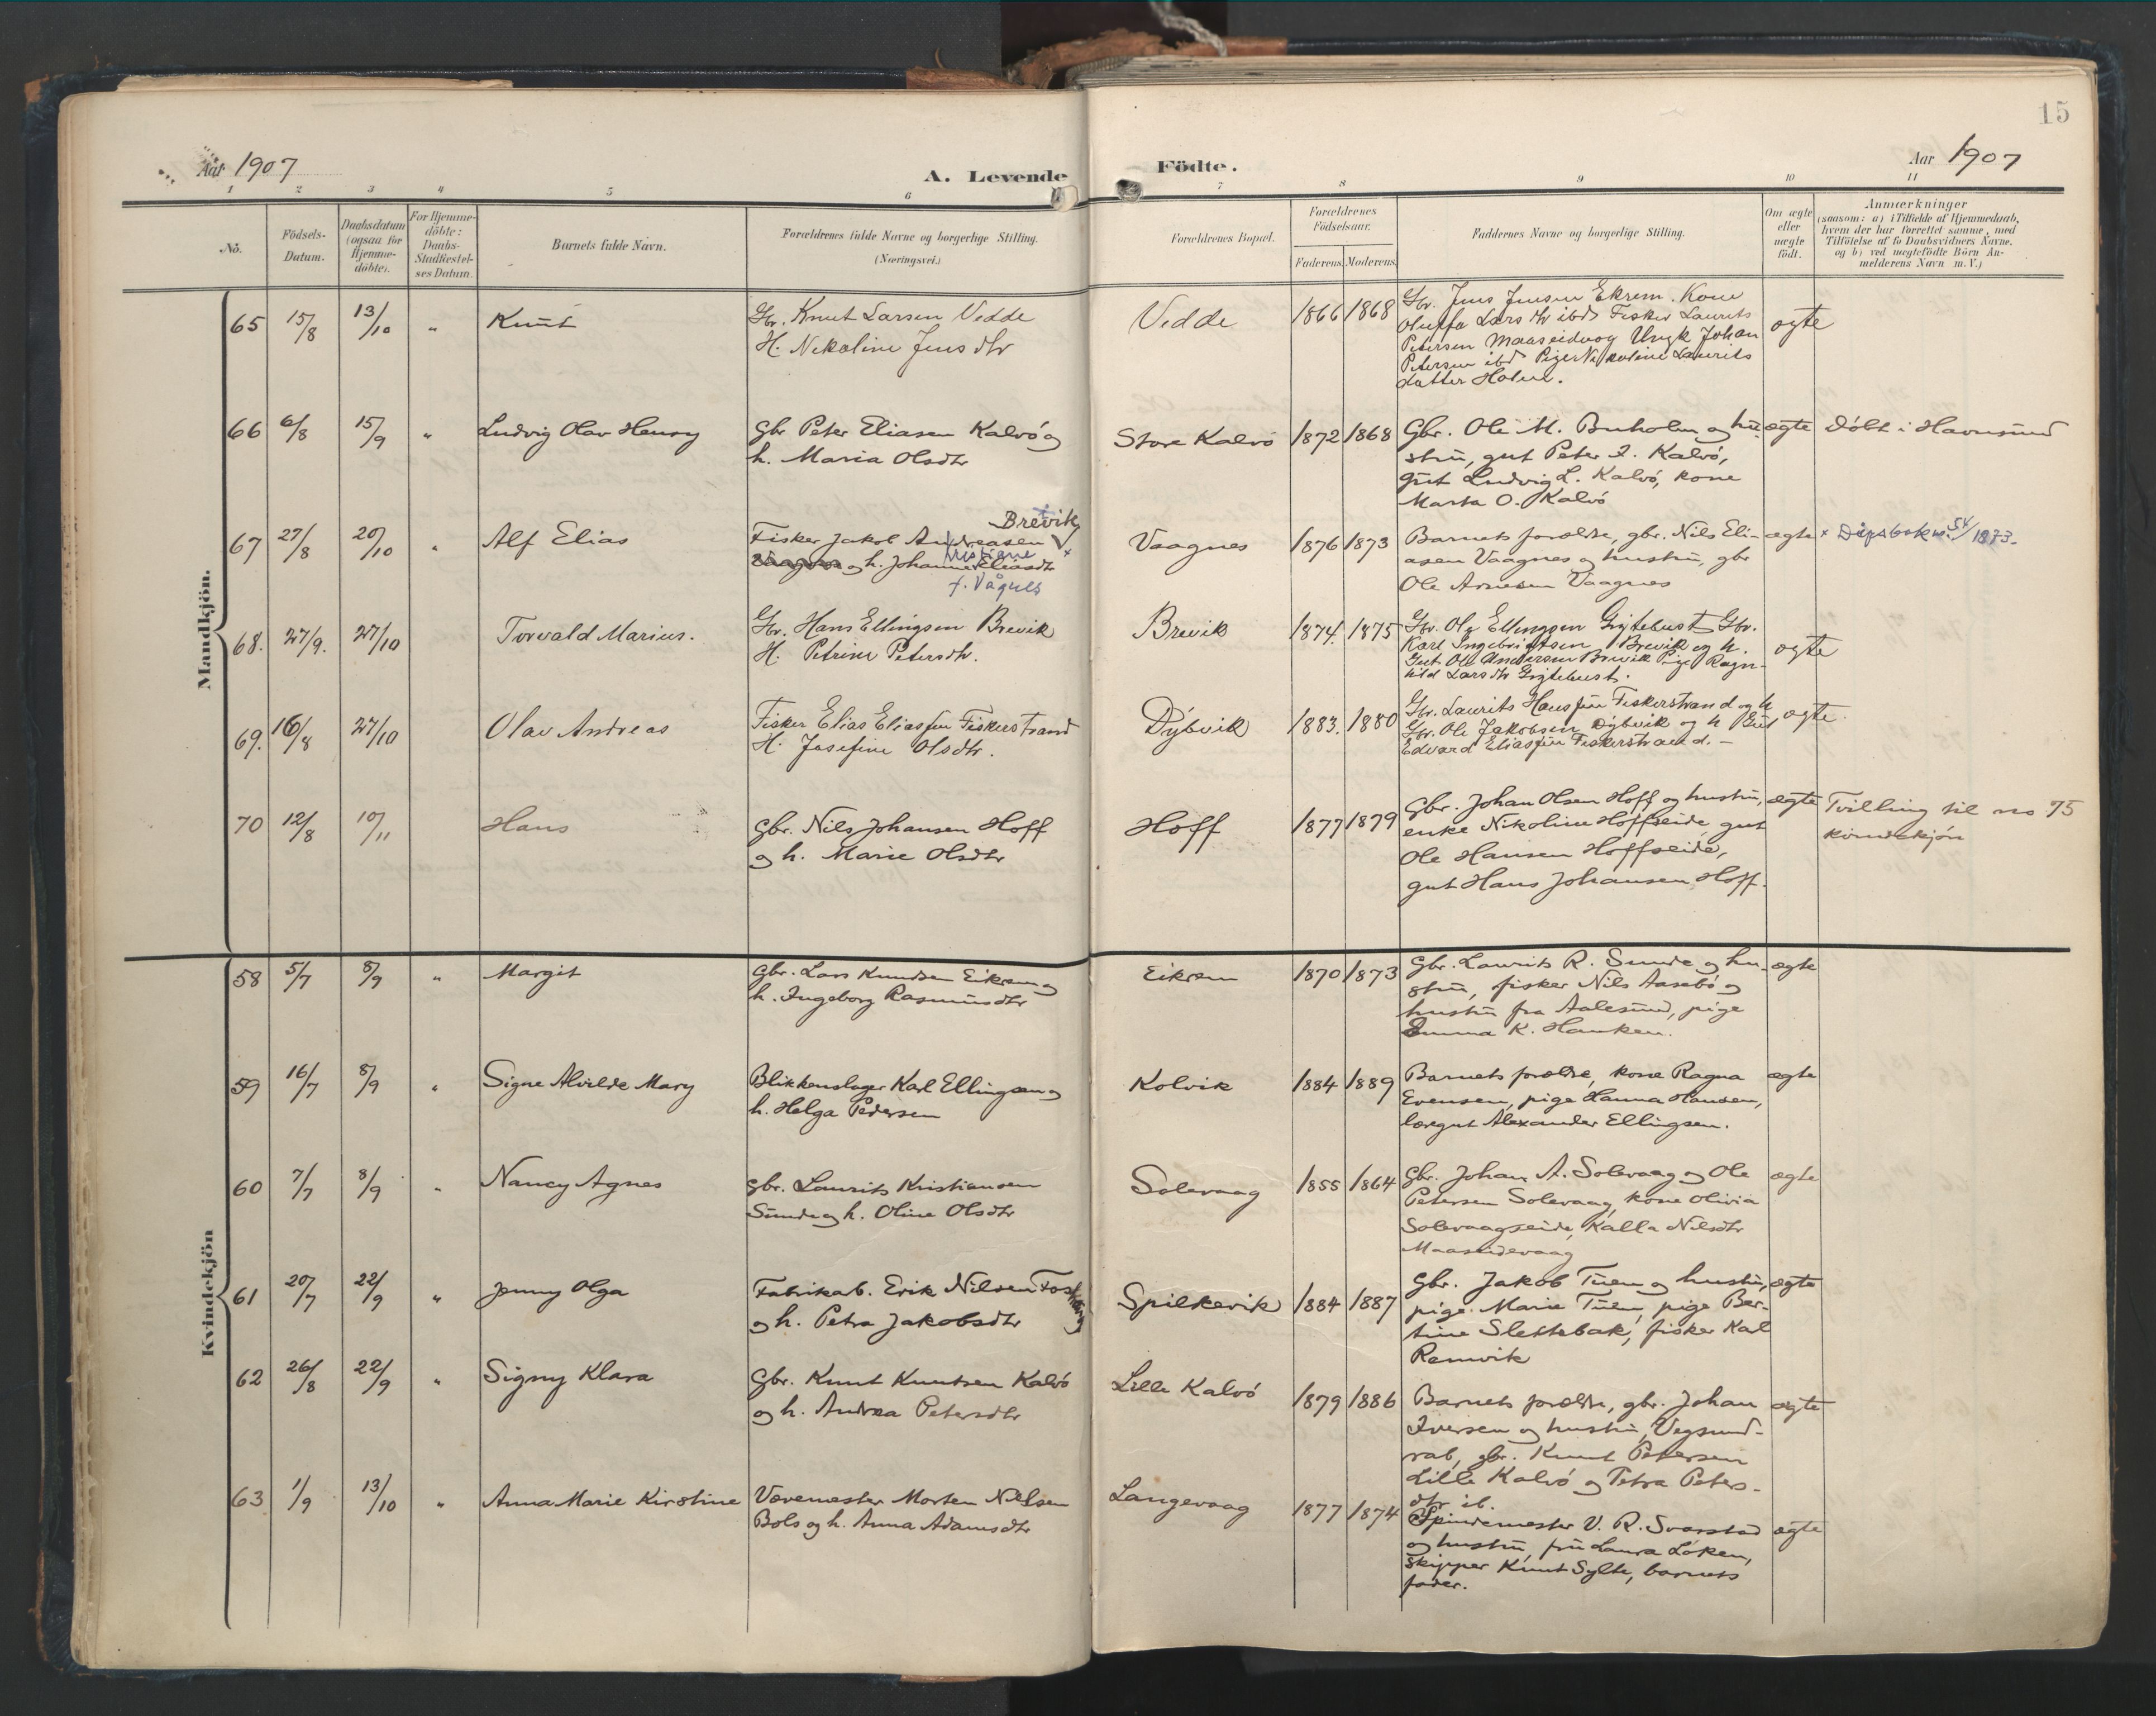 15
Aar 1907
A. Levende
Födte.
Aar 1907
1 2 3 4 5 6 7 8 9 10 11
No.
Födsels-
Datum.
Daabsdatum
(ogsaa for
Hjemme-
döbte).
For Hjemme-
döbte:
Daabs-
Stadfæstel-
ses Datum.
Barnets fulde Navn.
Forældrenes fulde Navne og borgerlige Stilling.
(Næringsvei.)
Forældrenes Bopæl.
Forældrenes
Födselsaar.
Faderens. Moderens.
Faddernes Navne og borgerlige Stilling.
Om ægte
eller
uægte
födt.
Anmærkninger
(saasom: a) i Tilfælde af Hjemmedaab,
hvem der har forrettet samme, med
Tilföielse af to Daabsvidners Navne,
og b) ved uegtefödte Börn An-
melderens Navn m. V.)
Mandkjön.
65 15/8 13/10 " Knut
Gbr. Knut Larsen Vedde
H. Nekoline Jensdtr
Vedde 1866 1868
Gbr. Jens Jensen Ekrem. Kone
Oluffa Larsdtr ibd Fisker Laurits
Petersen Maaseidvog Ungk Johan
Petersen ibd Pige Nikoline Laurits
datter Holen.
ægte
66 6/8 15/9 " Ludvig Olav Henry
Gbr Peter Eliasen Kalvö og
h. Maria Olsdtr
Store Kalvö 1872 1868
Gbr. Ole M. Buholm og hu-
stru, gut Peter I. Kalvö,
gut Ludvig L. Kalvö, kone
Marta O. Kalvö
ægte Döbt i Havnsund
67 27/8 20/10 " Alf Elias
Brevik
Fisker Jakob Andreasen
Vaagnes og h. Johanne Kristiane Eliasdtr
f. Vågnes
Vaagnes 1876 1873
Barnets forældre, gbr. Nils Eli-
asen Vaagnes og hustru, gbr
Ole Arnesen Vaagnes
ægte x Dåpsbok nr. 54/1873.
68. 27/9. 27/10 Torvald Marius.
Gbr. Hans Ellingsen Brevik
H. Petrine Petersdtr.
Brevik 1874. 1875
Gbr. Ole Ellingsen Grytebust Gbr.
Karl Ingebrigtsen Brevik og h.
Gut Ole Andersen Brevik Pige Ragn-
hild Larsdtr Grytebust.
ægte
69. 16/8 27/10 Olav Andreas
Fisker Elias Eliassen Fiskerstrand
H. Josefine Olsdtr.
Dybvik 1883. 1880
Gbr. Laurits Hanssen Fiskerstrand og h
Gbr. Ole Jakobsen Dybvik og h Gut
Edvard Eliassen Fiskerstrand. —
ægte.
70 12/8 10/11 Hans
Gbr. Nils Johansen Hoff
og h. Marie Olsdtr
Hoff 1877 1879
Gbr. Johan Olsen Hoff og hustru,
enke Nikoline Hoffseide, gut
Ole Hansen Hoffseide,
gut Hans Johansen Hoff.
ægte Tvilling til no 75
kvindekjön
Kvindekjön
58 5/7 8/9 " Margit
Gbr. Lars Knudsen Eikrem og
h. Ingeborg Rasmusdtr
Eikrem 1870 1873
Gbr. Laurits R. Sunde og hu-
stru, fisker Nils Aasebö og
hustru fra Aalesund, pige
Emma K. Hanken.
ægte
59 16/7 8/9 " Signe Alvilde Mary
Blikkenslager Karl Ellingsen og
h. Helga Pedersen
Kolvik 1884 1889
Barnets forældre, kone Ragna
Evensen, pige Hanna Hansen,
læregut Alexander Ellingsen.
ægte
60 7/7 8/9 " Nancy Agnes
Gbr. Laurits Kristiansen
Sunde og h. Oline Olsdtr
Solevaag 1855 1864
Gbr. Johan A. Solevaag og Ole
Petersen Solevaag, kone Olivia
Solevaagseide, Kalla Nilsdtr
Maaseidevaag
ægte
61 20/7 22/9 " Jenny Olga
Fabrikab. Erik Nilsen
og h. Petra Jakobsdtr
Spilkevik 1884 1887
Gbr. Jakob Tuen og hustru,
pige. Marie Tuen, pige Ber-
tine Slettebak, fisker Karl
Remvik
ægte
62 26/8 22/9 " Signy Klara
Gbr. Knut Knutsen Kalvö
og h. Andrea Petersdtr
Lille Kalvö 1879 1886
Barnets forældre, gbr. Johan
Iversen og hustru, Vegsund-
rab, gbr. Knut Petersen
Lille Kalvö og Petra Peters-
dtr ib.
ægte
63 1/9 13/10 " Anna Marie Kirstine
Vævemester Morten Nielsen
Bols og h. Anna Adamsdtr
Langevaag 1877 1874
Spindemester V. R. Svarstad
og hustru, fru Laura Löken,
skipper Knut Sylte, barnets
fader.
ægte